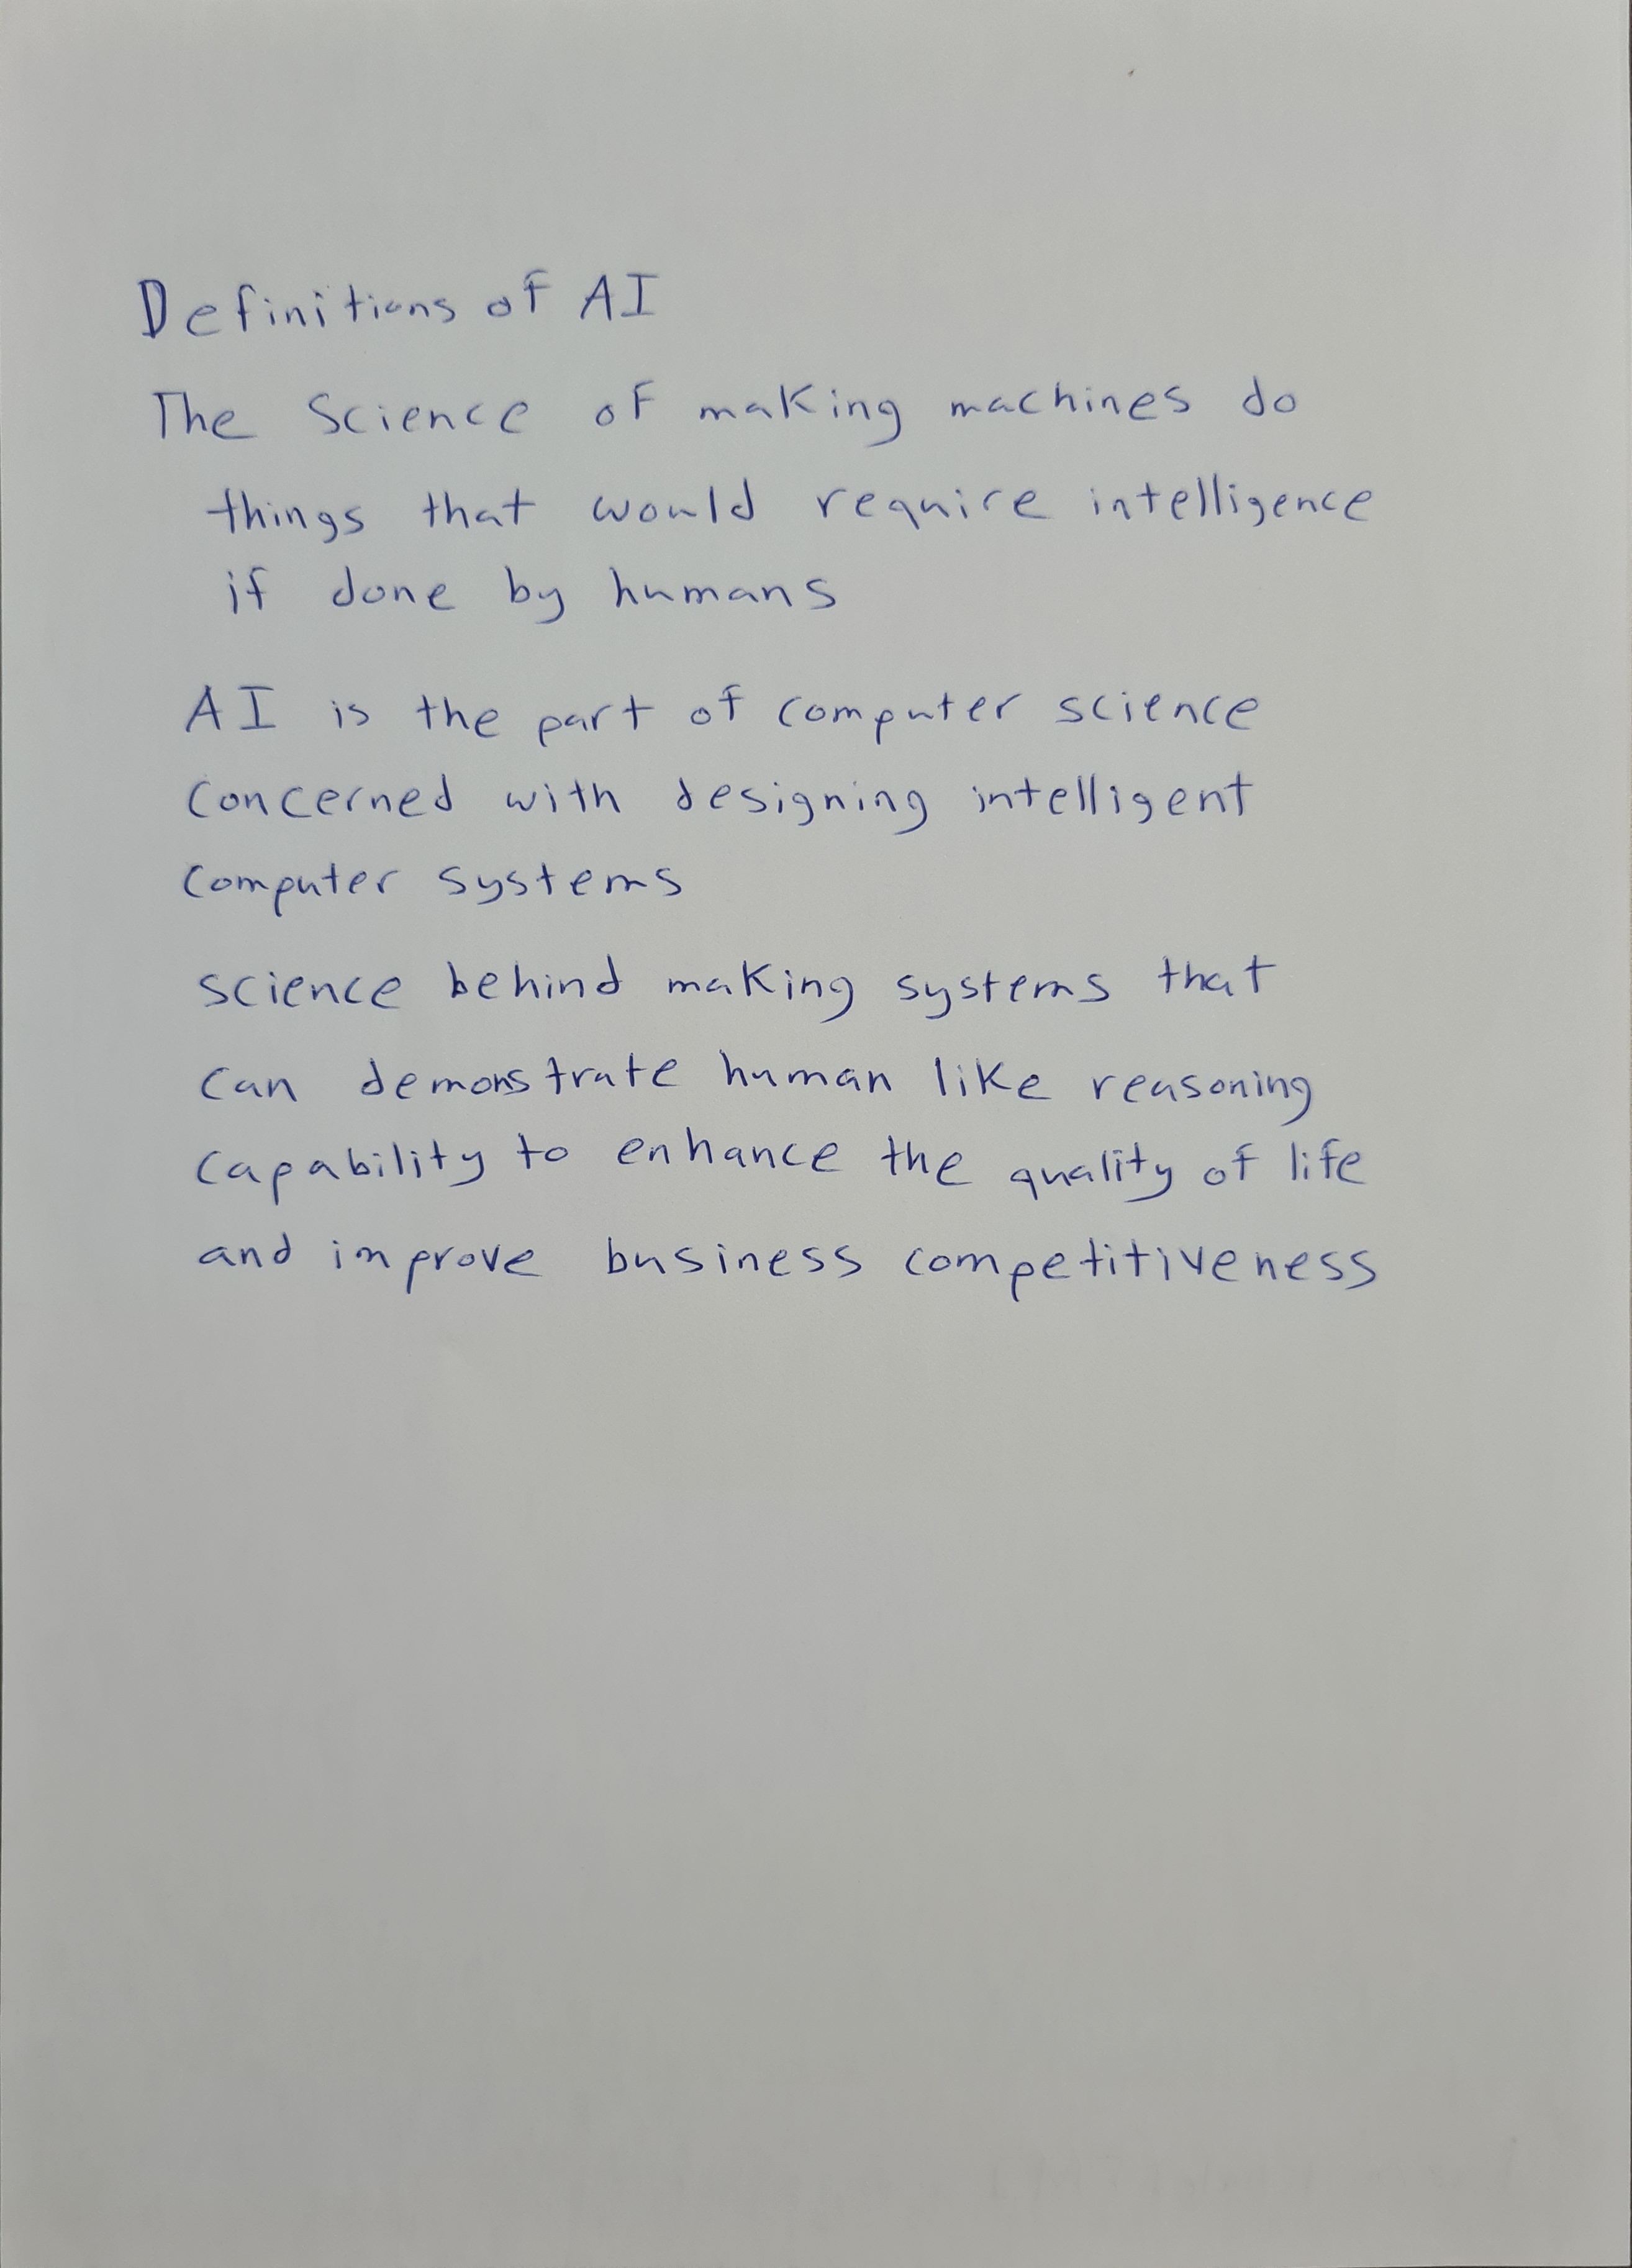 Definitions of AI
The Science of making machines do
things that would require intelligence
if done by humans
AI is the part of computer science
concerned with designing intelligent
computer systems
science behind making systems that
can demonstrate human like reasoning
capability to enhance the quality of life
and improve business competitiveness